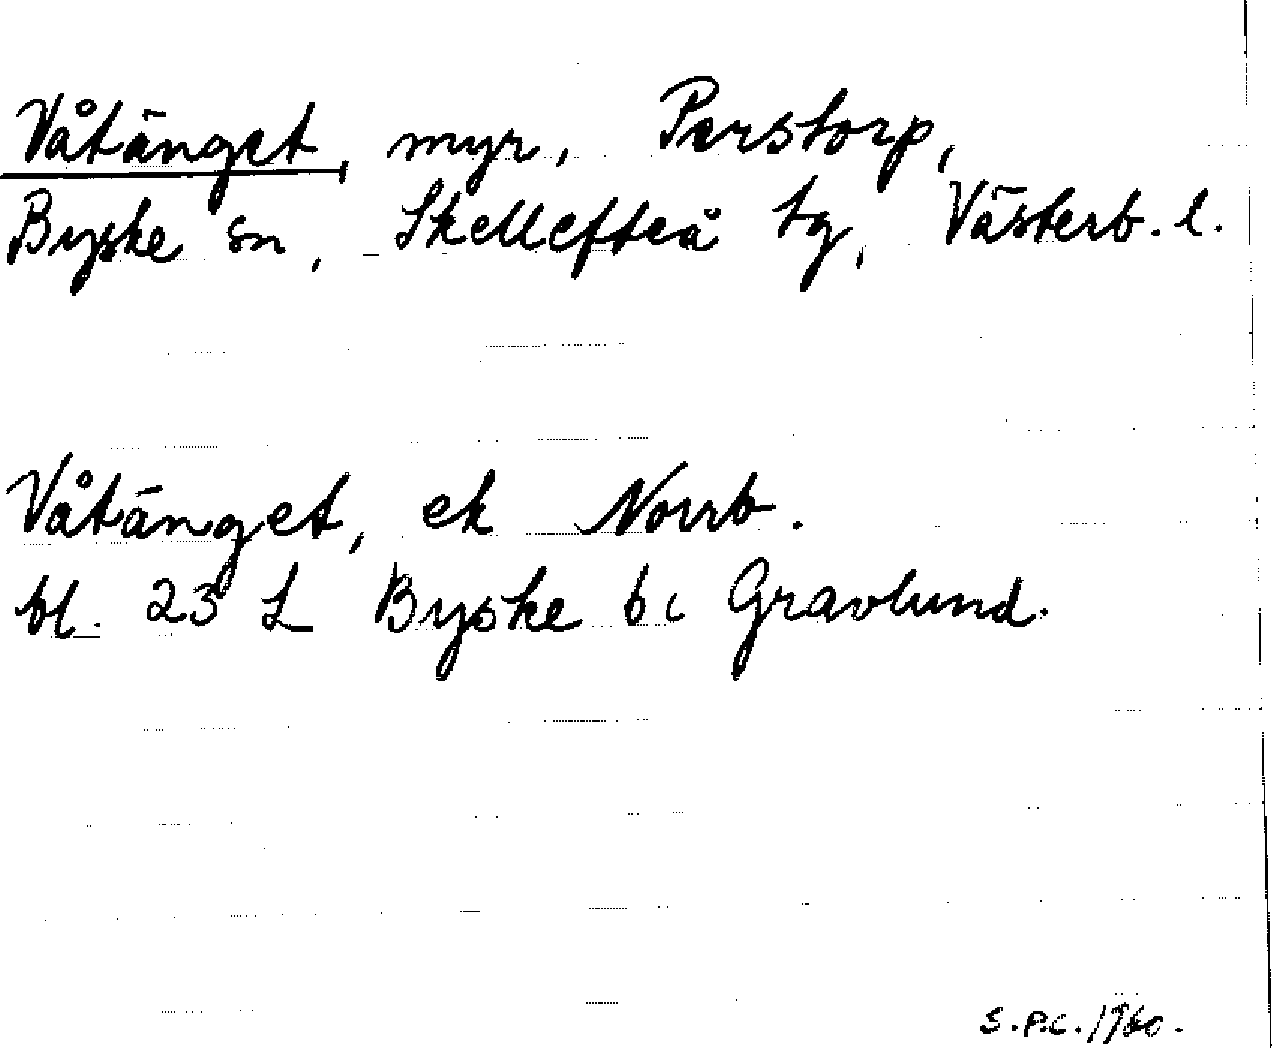 Våtänget, myr, Perstorp,
Byske sn, Skellefteå tg, Västerb. l.
Våtänget, ek Norrb.
bl. 23 L Byske bc Gravlund.
S.P.C. 1960.